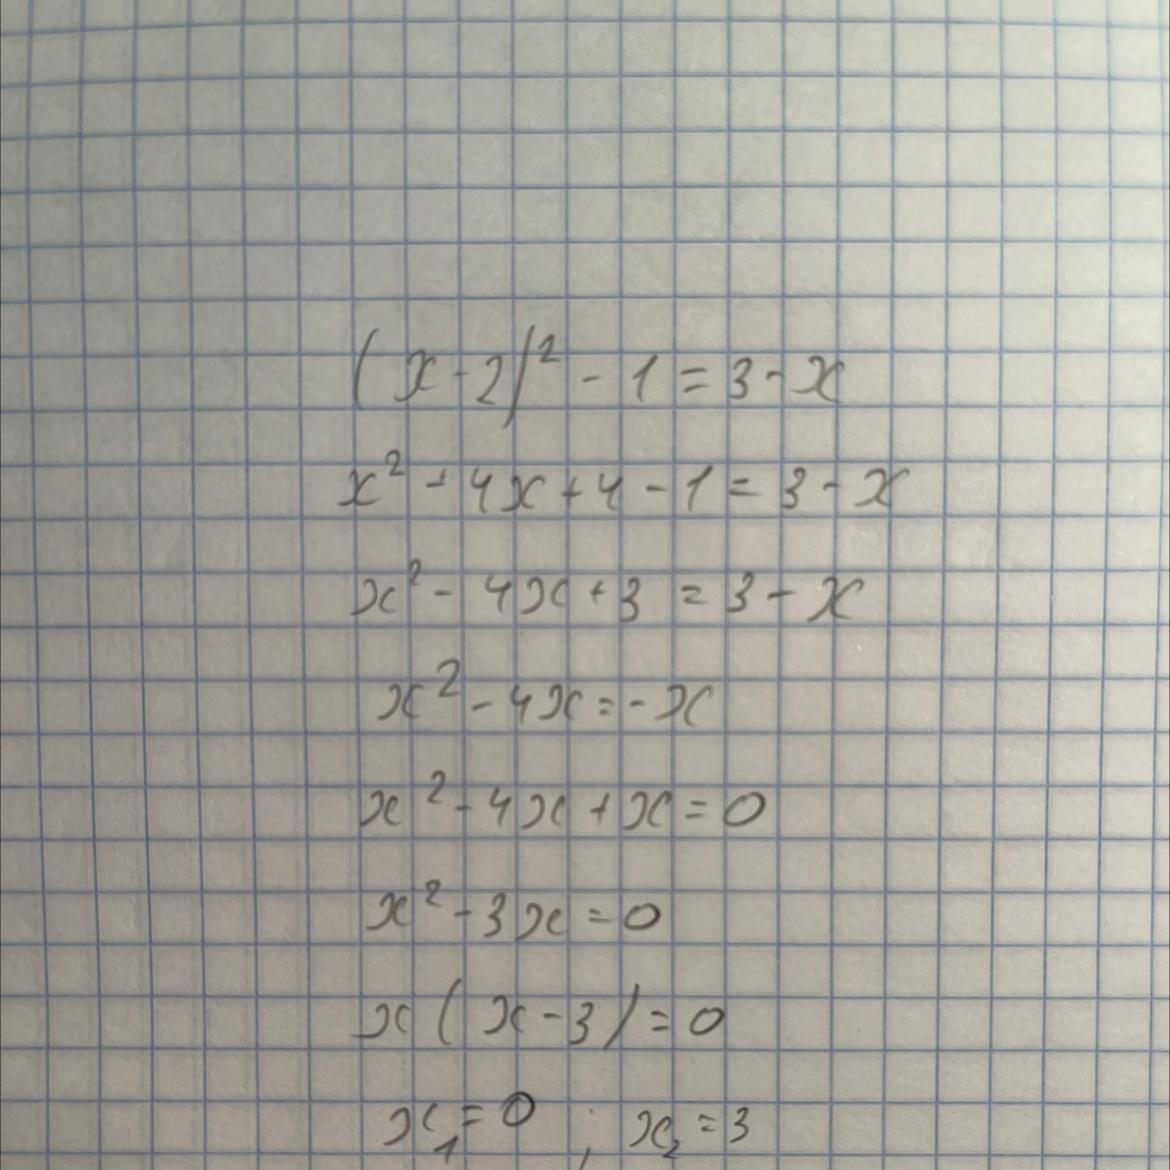 (x-2)² - 1 = 3 - x
x² - 4x + 4 - 1 = 3 - x
x² - 4x + 3 = 3 - x
x² - 4x = - x
x² - 4x + x = 0
x² - 3x = 0
x ( x - 3 ) = 0
x₁ = 0 ; x₂ = 3